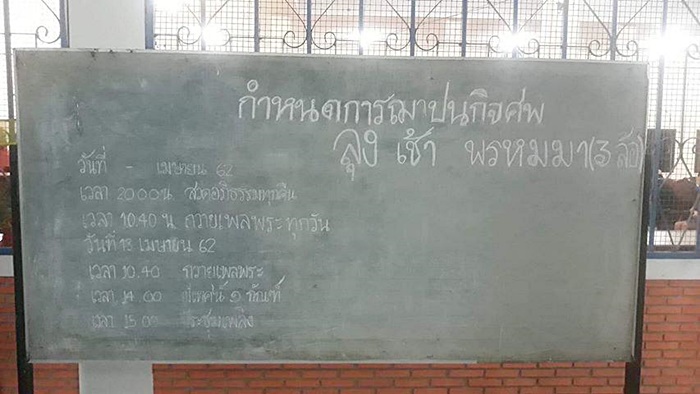 กำหนดการฌาปนกิจศพ
ลุง เช้า พรหมมา (3 ล้อ)
วันที่ - เมษายน 62
เวลา 20.00 น. สวดอภิธรรมทุกคืน
เวลา 10.40 น. ถวายเพลพระทุกวัน
วันที่ 13 เมษายน 62
เวลา 10.40 ถวายเพลพระ
เวลา 14.00 ๑ กัณฑ์
เวลา 15.00 ประชุมเพลิง